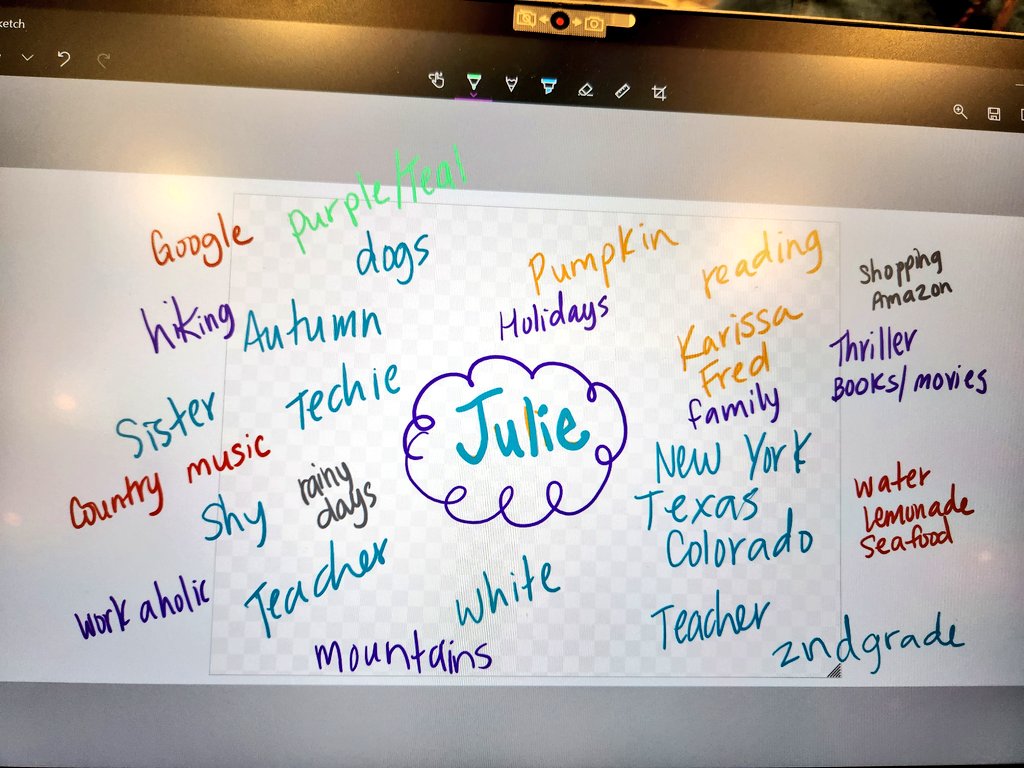 ketch
purple/Teal
Google
dogs
Pumpkin
reading
Shopping
Amazon
hiking
Autumn
Holidays
Karissa
Fred
family
Thriller
Books/movies
Sister
Techie
Julie
New York
Texas
Colorado
Country music
Shy
rainy
days
water
Lemonade
Seafood
workaholic
Teacher
white
Teacher
2nd grade
mountains